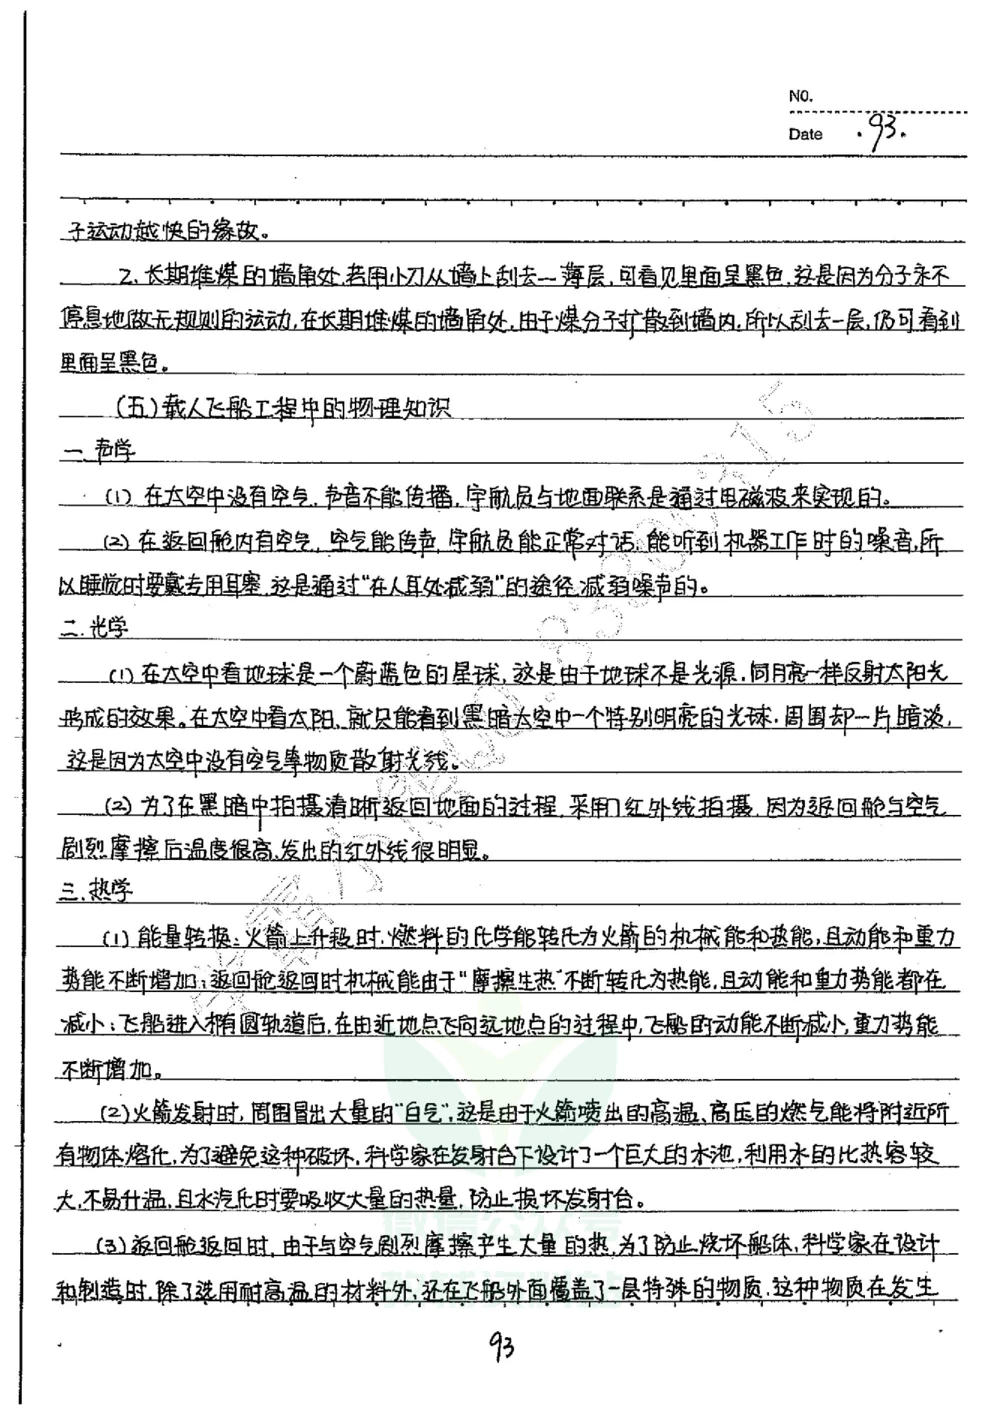 NO.
Date .93.
子运动越快的缘故。
2.长期堆煤的墙角处,若用小刀从墙上刮去一薄层,可看见里面呈黑色,这是因为分子永不
停息地做无规则的运动,在长期堆煤的墙角处,由于煤分子扩散到墙内,所以刮去一层,仍可看到
里面呈黑色。
(五)载人飞船工程中的物理知识
一.声学
(1)在太空中没有空气,声音不能传播,宇航员与地面联系是通过电磁波来实现的。
(2)在返回舱内有空气,空气能传声,宇航员能正常对话,能听到机器工作时的噪音,所
以睡觉时要戴专用耳塞,这是通过“在人耳处减弱”的途径减弱噪声的。
二.光学
(1)在太空中看地球是一个蔚蓝色的星球,这是由于地球不是光源,同月亮一样反射太阳光
形成的效果。在太空中看太阳,就只能看到黑暗太空中一个特别明亮的光球,周围却一片暗淡,
这是因为太空中没有空气等物质散射光线。
(2)为了在黑暗中拍摄清晰返回地面的过程,采用红外线拍摄,因为返回舱与空气
剧烈摩擦后温度很高,发出的红外线很明显。
三.热学
(1)能量转换:火箭上升段时,燃料的化学能转化为火箭的机械能和热能,且动能和重力
势能不断增加;返回舱返回时机械能由于“摩擦生热”不断转化为热能,且动能和重力势能都在
减小;飞船进入椭圆轨道后,在由近地点飞向远地点的过程中,飞船的动能不断减小,重力势能
不断增加。
(2)火箭发射时,周围冒出大量的“白气”,这是由于火箭喷出的高温、高压的燃气能将附近所
有物体熔化,为了避免这种破坏,科学家在发射台下设计了一个巨大的水池,利用水的比热容较
大,不易升温,且水汽化时要吸收大量的热量,防止损坏发射台。
(3)返回舱返回时,由于与空气剧烈摩擦产生大量的热,为了防止烧坏船体,科学家在设计
和制造时,除了选用耐高温的材料外,还在飞船外面覆盖了一层特殊的物质,这种物质在发生
93